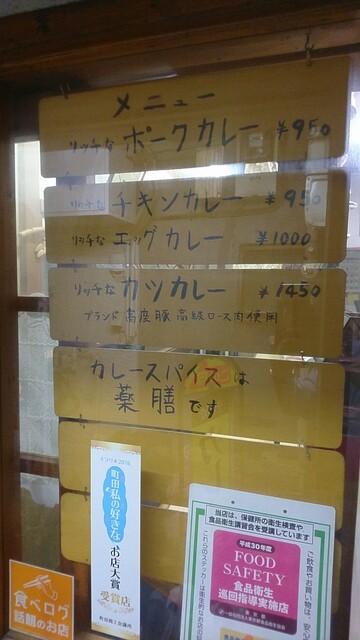 メニュー
リッチな ポークカレー ¥950
リッチな チキンカレー ¥950
リッチな エッグカレー ¥1000
リッチな カツカレー ¥1450
ブランド高座豚高級ロース肉使用
カレースパイスは
薬膳です
町田「私の好きな
お店大賞」
受賞店
町田商工会議所
食べログ
話題のお店
当店は、保健所の衛生検査や
食品衛生講習会を受講しています
平成30年度
FOOD
SAFETY
食品衛生
巡回指導実施店